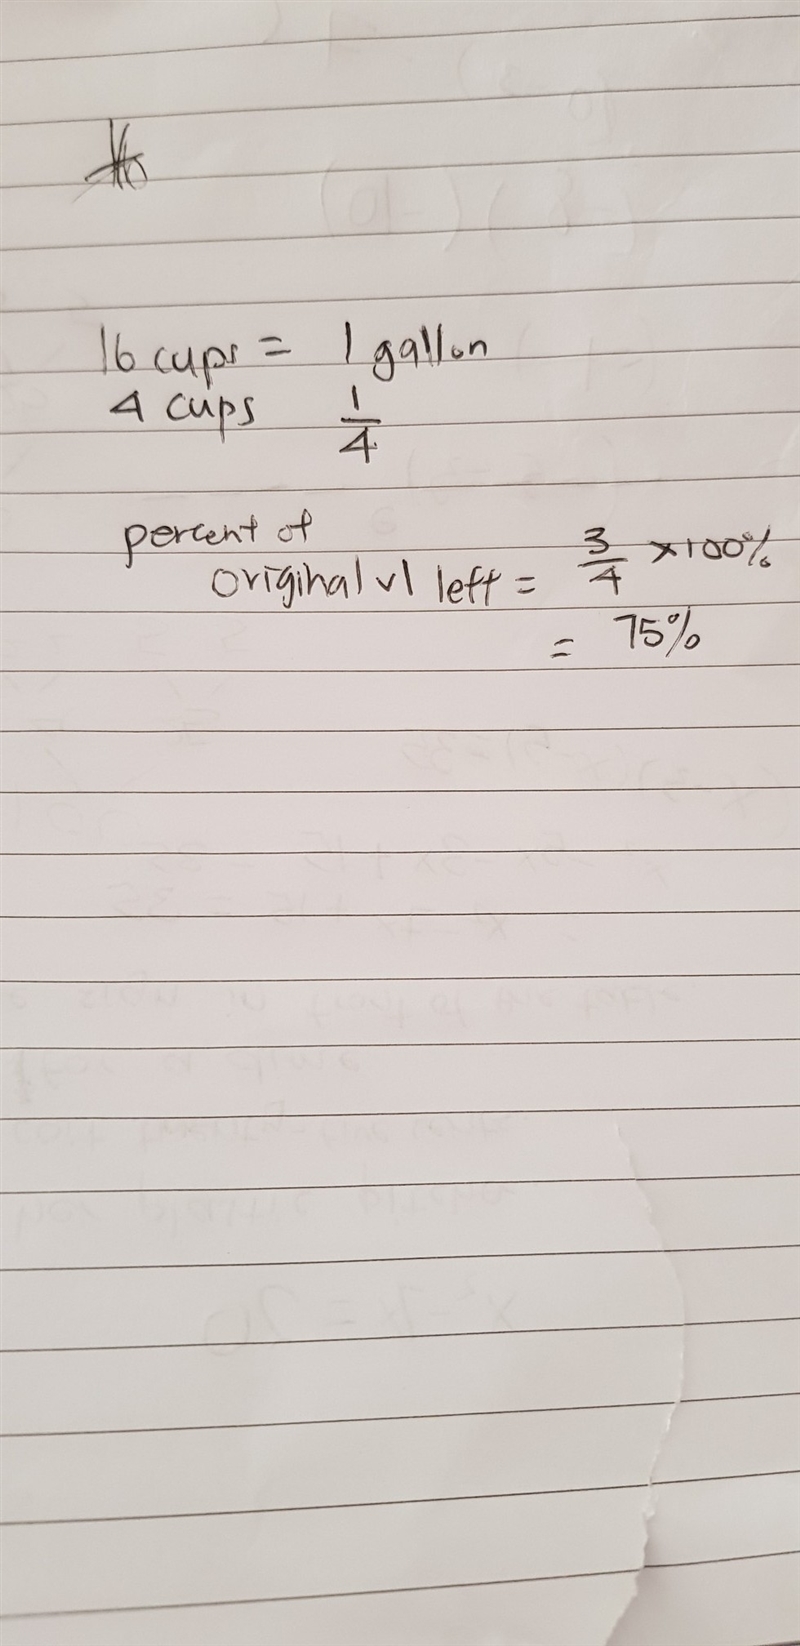 16 cups = 1 gallon
4 cups 1/4
percent of
original vl left = 3/4 x100%
= 75%